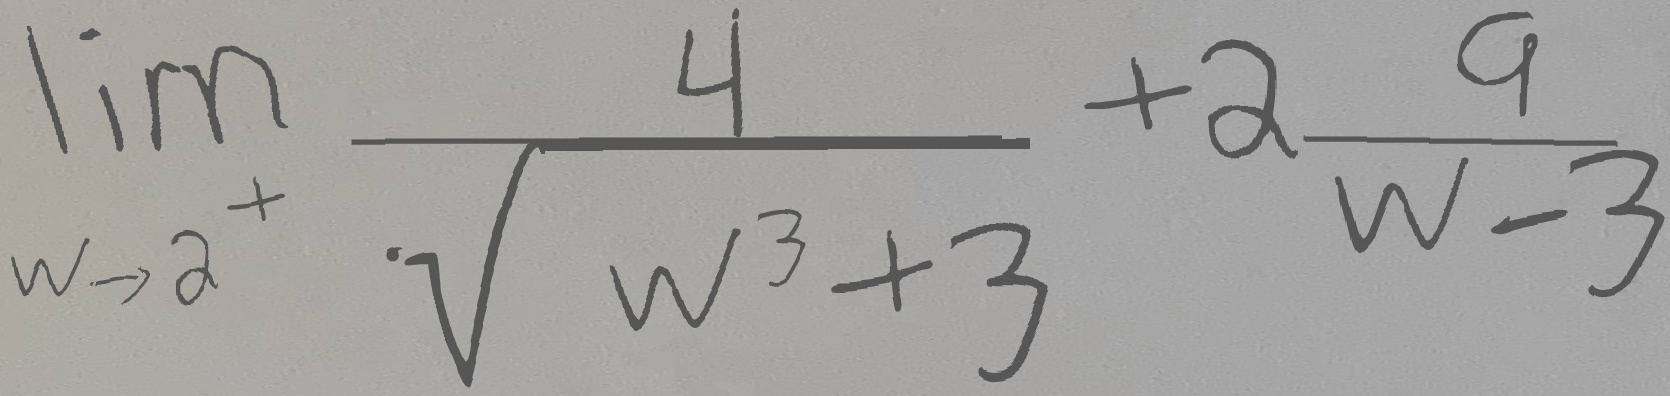 \lim_{w \to 2^+} \frac{4}{\sqrt{w^3+3}} + 2\frac{9}{w-3}